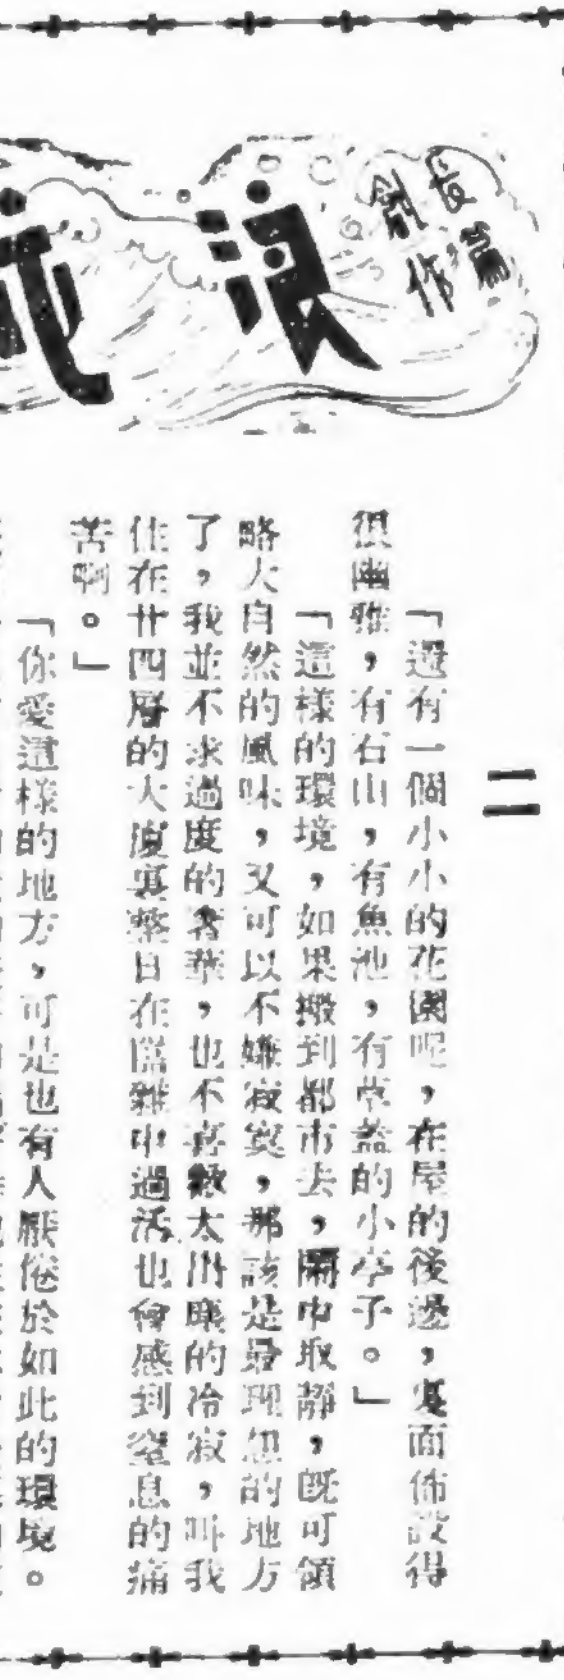 長篇
創作
浪
二
「還有一個小小的花園呢，在屋的後邊，裏面佈設得
很幽雅，有石山，有魚池，有草蓋的小亭子。」
「這樣的環境，如果搬到都市去，鬧中取靜，既可領
略大自然的風味，又可以不嫌寂寞，那該是最理想的地方
了，我並不求過度的奢華，也不喜歡太的冷寂，叫我
住在廿四層的大廈裏整日在雜中過活也會感到窒息的痛
苦啊。」
「你愛這樣的地方，可是也有人厭倦於如此的環境。